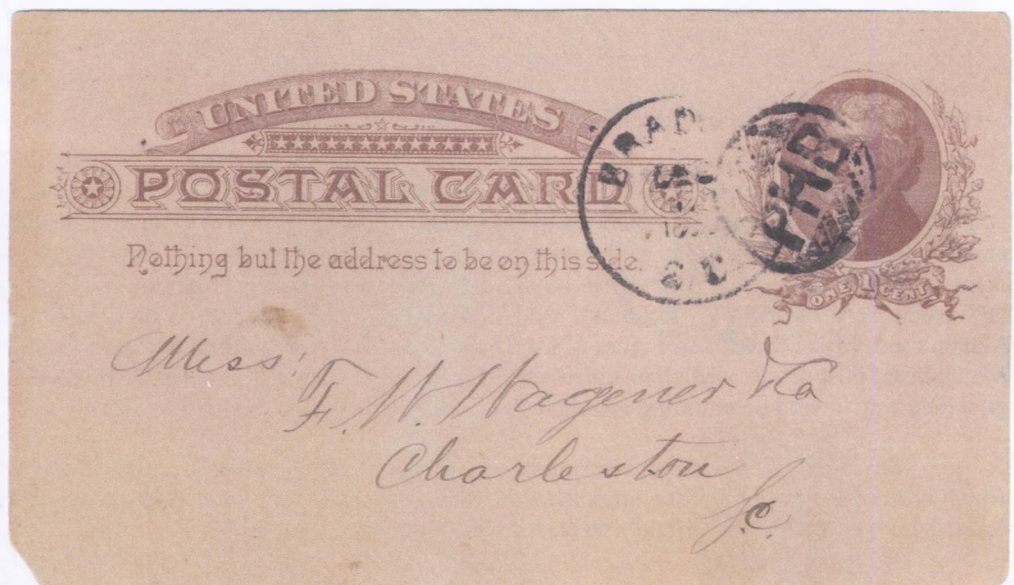 UNITED STATES
POSTAL CARD
Nothing but the address to be on this side.
ONE 1 CENT
BRAD
PHB
Mess:
F. W. Wagener & Co
Charleston
S.C.